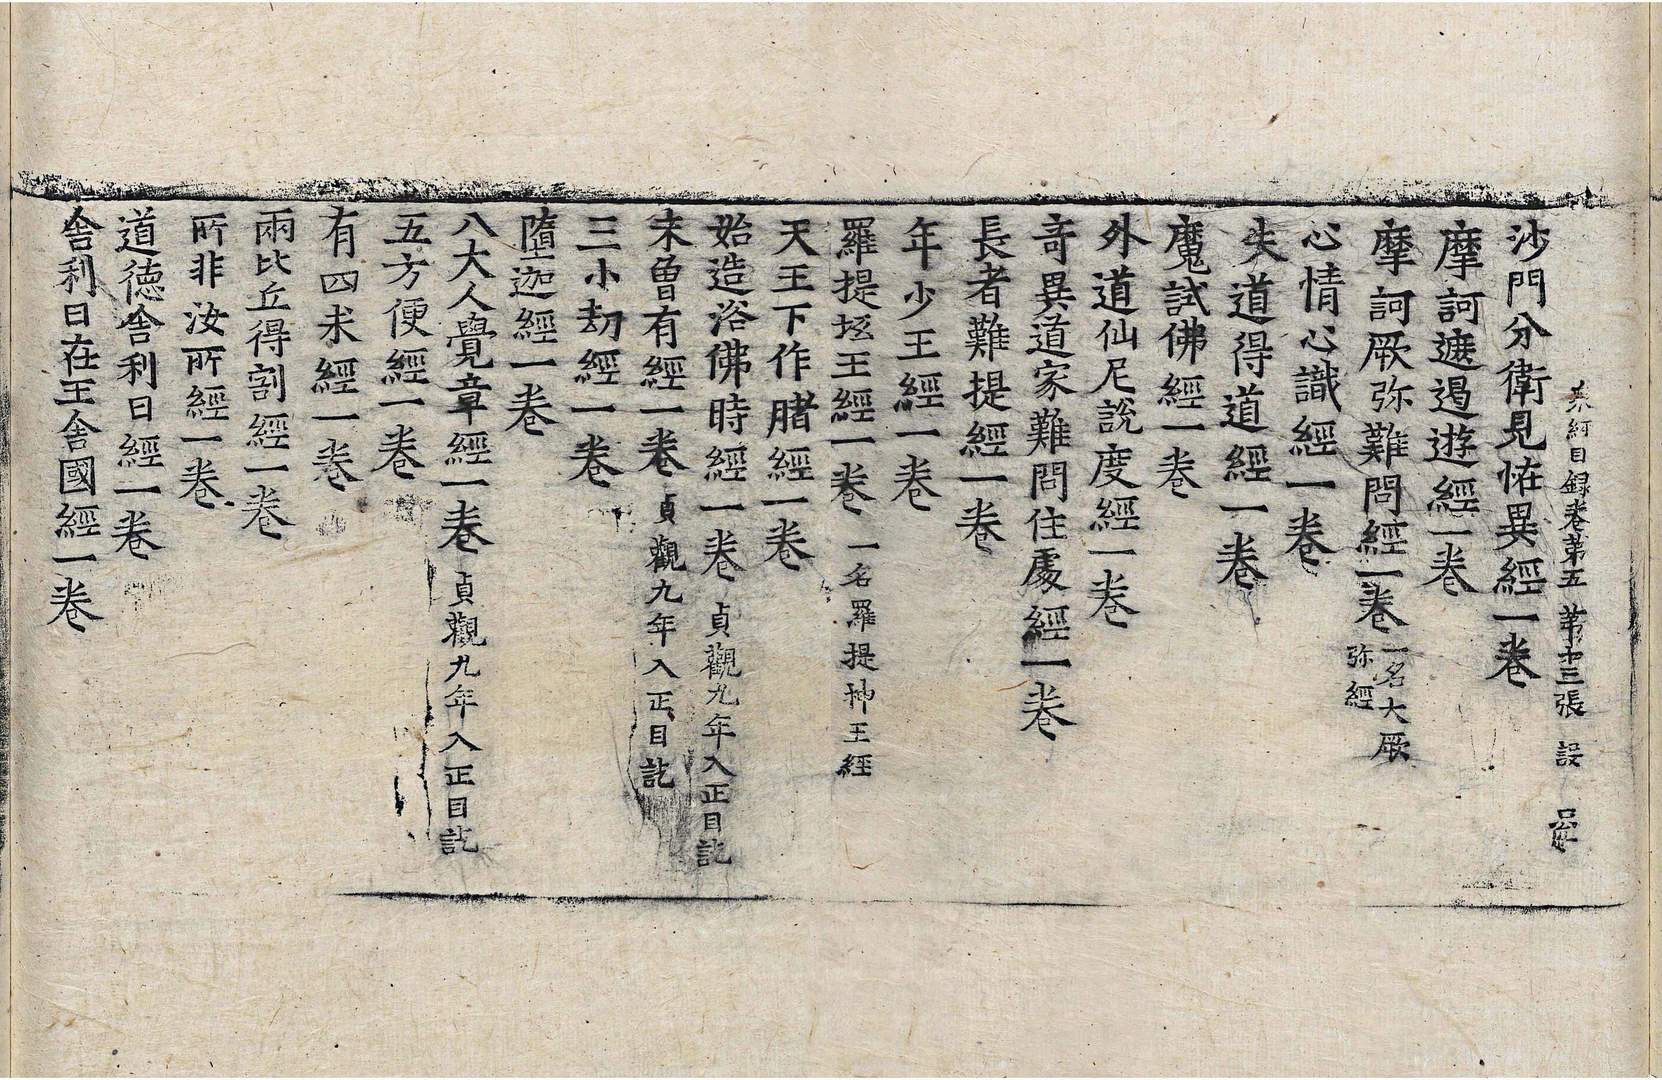 衆經目録卷第五 第十三張 設
沙門分衛見恠異經一卷
摩訶遮遏遊經一卷
摩訶厥弥難問經一卷 一名大厥弥經
心情心識經一卷
失道得道經一卷
魔試佛經一卷
外道仙尼說度經一卷
竒異道家難問住處經一卷
長者難提經一卷
年少王經一卷
羅提坻王經一卷 一名羅提神王經
天王下作䐗經一卷
始造浴佛時經一卷 貞觀九年入正目訖
未曾有經一卷 貞觀九年入正目訖
三小刧經一卷
墮迦經一卷
八大人覺章經一卷 貞觀九年入正目訖
五方便經一卷
有四求經一卷
兩比丘得割經一卷
所非汝所經一卷
道德舍利日經一卷
舎利日在王舎國經一卷